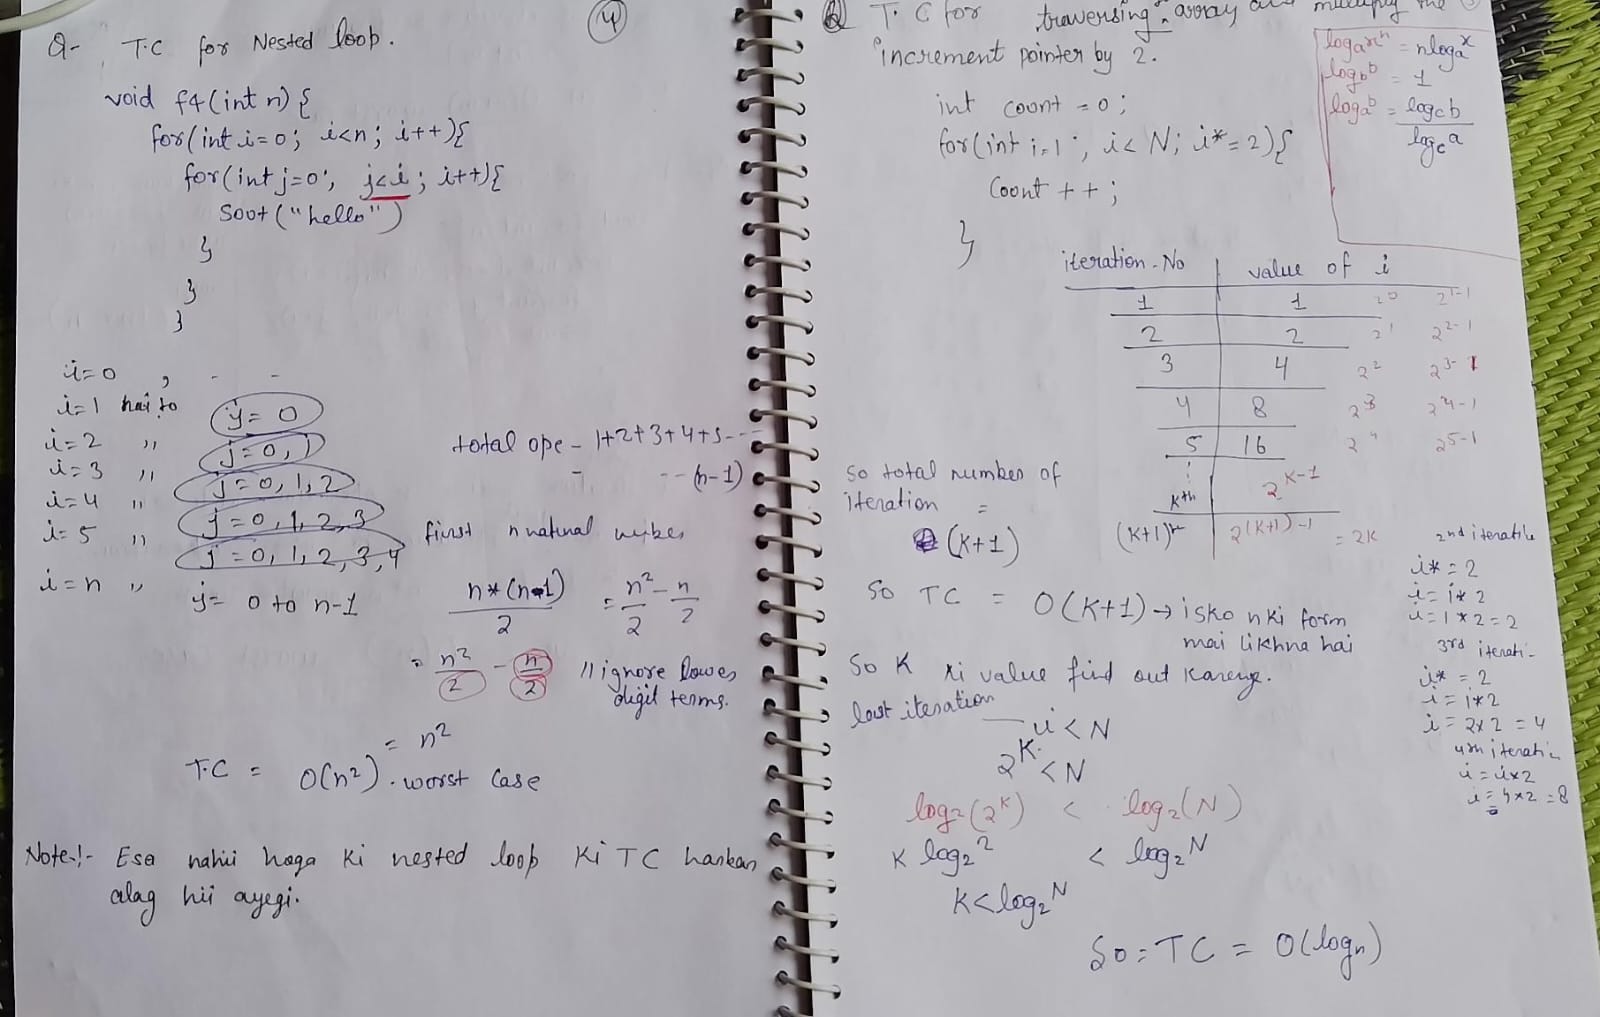 4
Q- T.C for Nested loop.
void f4(int n) {
for(int i=0; i<n; i++){
for(int j=0; j<i; i++){
Soot("hello")
}
}
}
i=0 , - -
i=1 hai to j= 0
i=2 ,, j=0, 1
i=3 ,, j=0,1,2
i=4 ,, j=0,1,2,3
i=5 ,, j=0,1,2,3,4
i=n ,, j= 0 to n-1
total ope - 1+2+3+4+5---
- -- (n-1)
first n natural
n*(n-1)/2 = n²/2 - n/2
= n²/2 - n/2 // ignore lower
digit terms.
= n²
T.C = O(n²). worst Case
Note!- Esa nahii hoga ki nested loop ki TC harbar
alag hii ayegi.
Q T.C for traversing array and multiply the
increment pointer by 2.
int count = 0;
for(int i=1; i<N; i*=2){
Count ++;
}
log_a x^n = n log_a x
log_b b = 1
log_a b = log_c b / log_c a
iteration-No | value of i
1 | 1 2^0 2^1-1
2 | 2 2^1 2^2-1
3 | 4 2^2 2^3-1
4 | 8 2^3 2^4-1
5 | 16 2^4 2^5-1
⋮
Kth | 2^K-1
(K+1)th | 2^(K+1)-1 = 2K
So total number of
iteration =
(K+1)
So TC = O(K+1) → isko n ki form
mai likhna hai
So K ki value find out karenge.
last iteration
— i < N
2^K < N
log₂(2^K) < log₂(N)
K log₂2 < log₂N
K < log₂N
So = TC = O(log n)
2nd iteratile
i* = 2
i= i*2
i= 1*2=2
3rd iterati-
i* = 2
i= i*2
i= 2x2 = 4
4th iterati-
i= ix2
i= 4x2 = 8